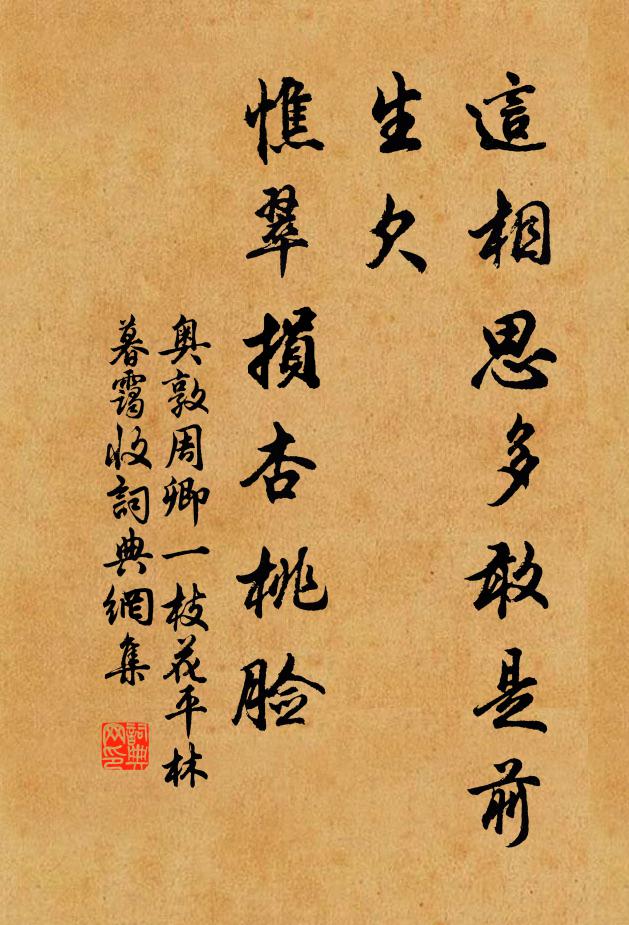 這相思多敢是前
生欠
憔翠損杏桃脸
奥敦周卿一枝花平林
暮靄收詞典網集
詞典
网印